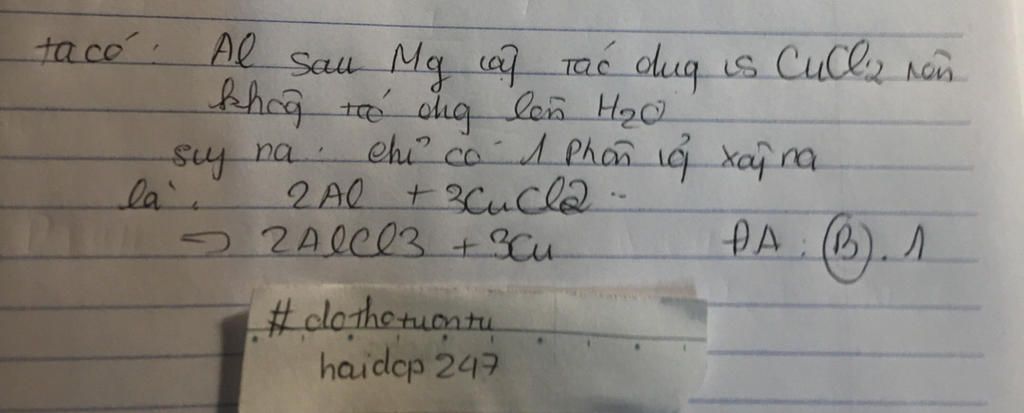 ta có: Al sau Mg cần tác dug vs CuCl2 nên
khôg tác dụg lên H2O
suy ra: chỉ có 1 phản xảy ra
là: 2Al + 3CuCl2
=> 2AlCl3 + 3Cu ĐA: B. 1
#clothotuontu
haidcp247